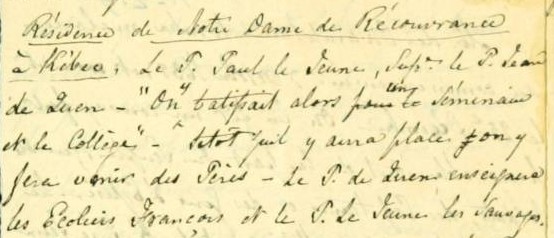 Résidence de Notre Dame de Récouvrance
à Kébec, Le P. Paul le Jeune, Supr. le P. Jean
de Quen - "On y batissait alors un Séminaire
et le Collège" - "Sitot qu'il y aura place on y
fera venir des Pères - Le P. de Quen enseignera
les Ecoliers François et le P. Le Jeune les Sauvages.